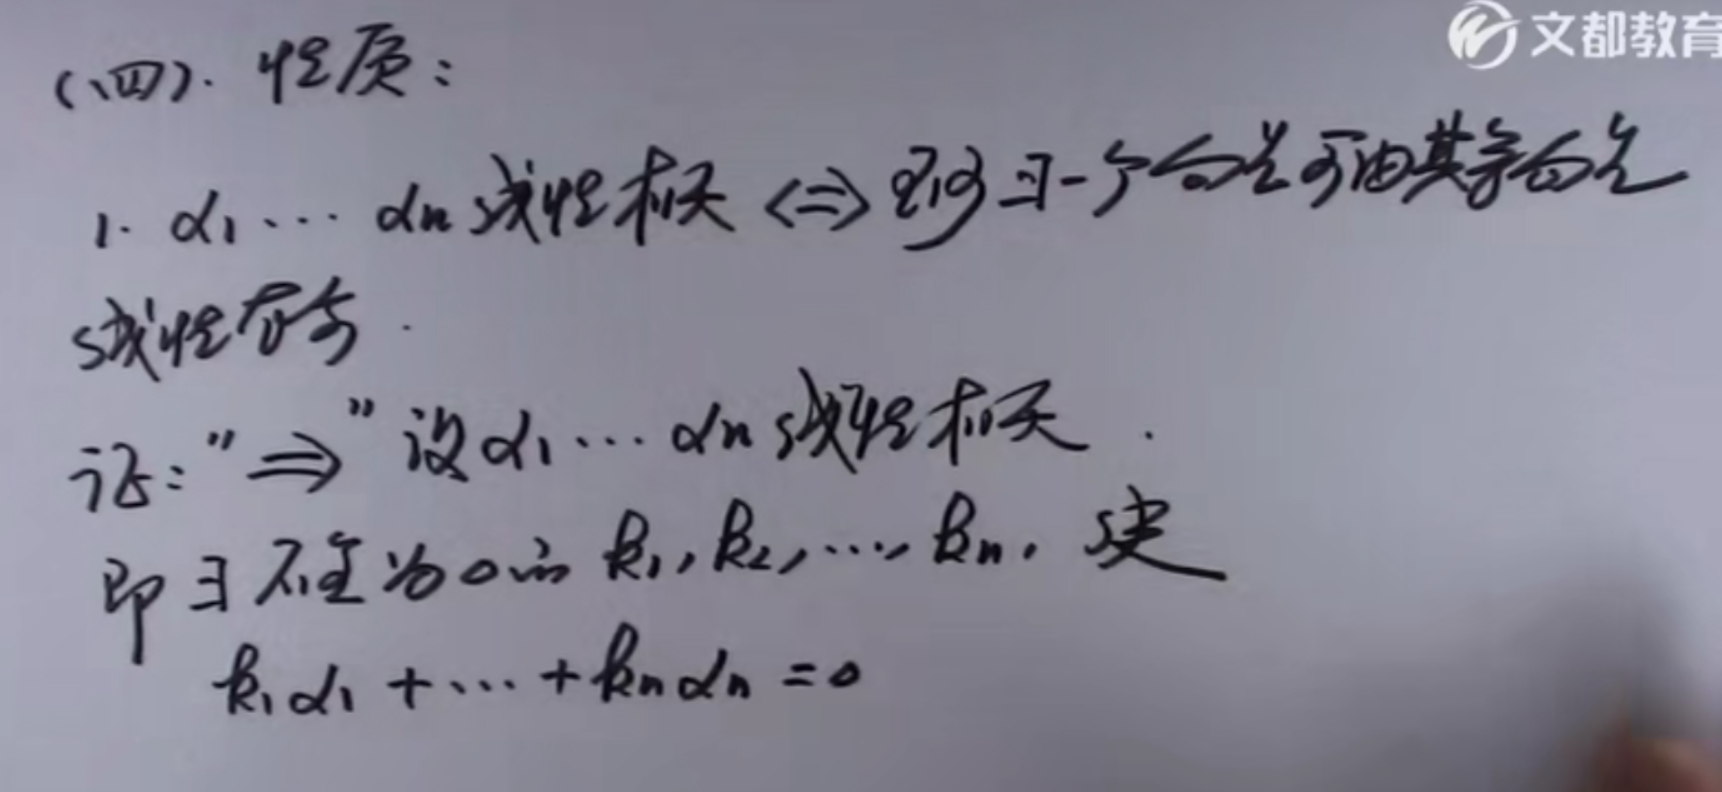 文都教育
(四). 性质:
1. α1 ··· αn 线性相关 <=> 至少∃一个向量可由其余向量
线性表示.
证: "⇒" 设α1 ··· αn 线性相关.
即∃不全为0的 k1, k2, ···, kn, 使
k1α1 + ··· + knαn = 0